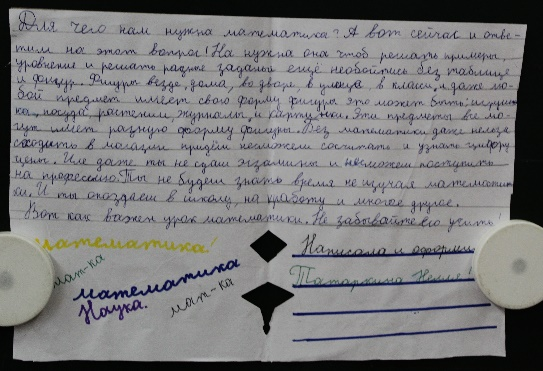 Для чего нам нужна математика? А вот сейчас и отве-
тим на этот вопрос! На нужна она чтоб решать примеры,
уровнение и решать разные задания ещё необойтись без таблице
и фигур. Фигуры везде, дома, во дворе, в улица в класси, и даже лю-
бой предмет имеет свою форму фигуры это может быть: игруш-
ка, посуда растении, журналы, и картинки. Эти предметы все мо-
гут иметь разную форму фигуры. Без математики даже нельзя
сходить в магазин придём несможем сосчитать и узнать цифру
цены. Или даже ты не сдаш экзамины и несможем поступить
на професию. Ты не будеш знать время не изучая математи-
ки. И ты опоздаеш в школу, на работу и многое другое.
Вот как важен урок математики. Не забывайте его учить!
математика!
мат-ка
математика
Наука.
мат-ка
Написала и оформи
Татаркина